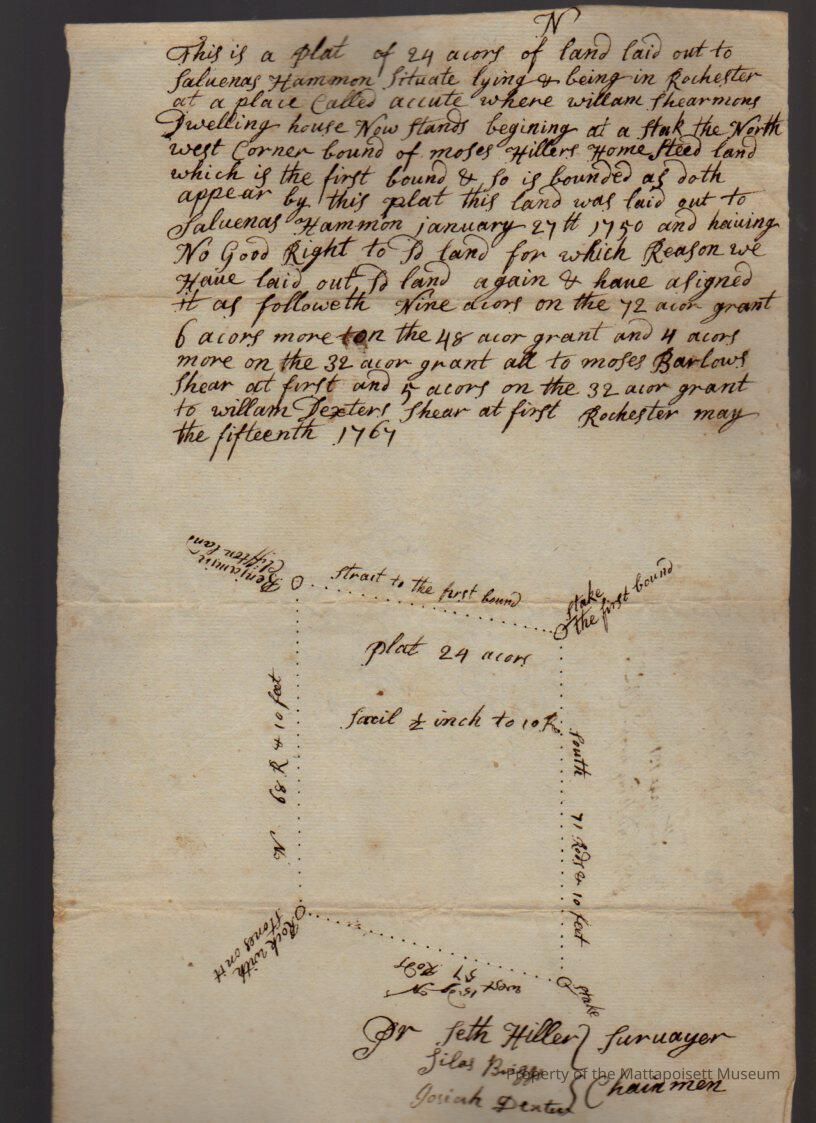 N
This is a plat of 24 acors of land laid out to
Saluenas Hammon Situate lying & being in Rochester
at a place Called accute where willam Shearmons
Dwelling house Now Stands begining at a Stak the North
west Corner bound of moses Hillers Home Steed land
which is the first bound & so is bounded as doth
appear by this plat this land was laid out to
Saluenas Hammon january 27th 1750 and hauing
No Good Right to Sd land for which Reason we
Haue laid out Sd land again & haue asigned
it as followeth Nine acors on the 72 acor grant
6 acors more on the 48 acor grant and 4 acors
more on the 32 acor grant all to moses Barlows
Shear at first and 5 acors on the 32 acor grant
to willam Dexters Shear at first Rochester may
the fifteenth 1767
Benjamin
Clifton land
Strait to the first bound
Stake
the first bound
plat 24 acors
Scail ½ inch to 10 R
N 68 R & 10 feet
South 71 Rods & 10 feet
Rock with
stones on it
west 15 Dg N
57 Rods
stake
Pr Seth Hiller } Suruayer
Silas Briggs
Josiah Dexter } Chainmen
Property of the Mattapoisett Museum